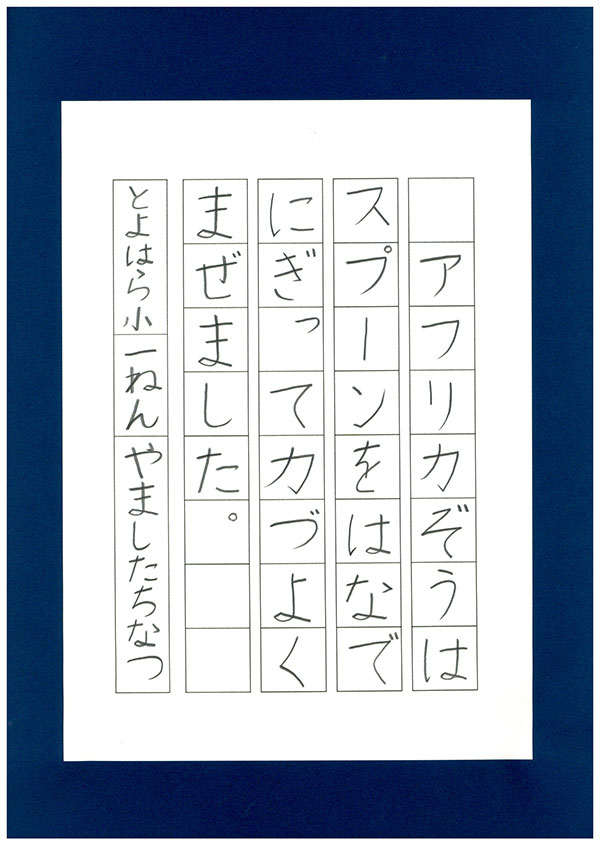 アフリカぞうは
スプーンをはなで
にぎって力づよく
まぜました。
とよはら小 一ねん やましたちなつ